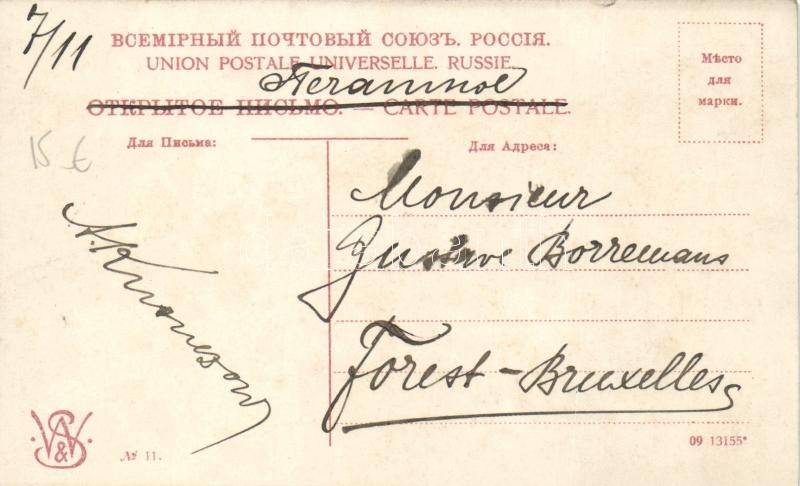 7/11
ВСЕМІРНЫЙ ПОЧТОВЫЙ СОЮЗЪ. РОССІЯ.
UNION POSTALE UNIVERSELLE. RUSSIE.
Печатное
ОТКРЫТОЕ ПИСЬМО. — CARTE POSTALE.
Мѣсто
для
марки.
15 €
Для Письма:
Для Адреса:
Monsieur
Gustave Borremans
Forest-Bruxelles
№ 11.
09 13155*